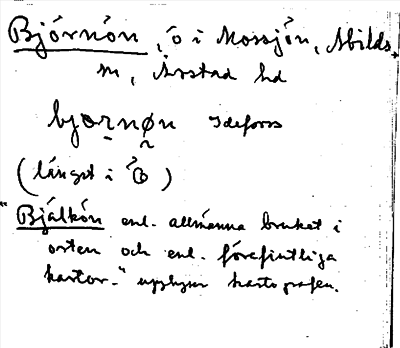 Björnön, ö i Mossjön, Abilds
sn, Årstad hd
bjœrnøn Idefors
(längst i Ö)
"Bjälkön enl. allmänna bruket i
orten och enl. förefintliga
kartor." upplyser kartografen.